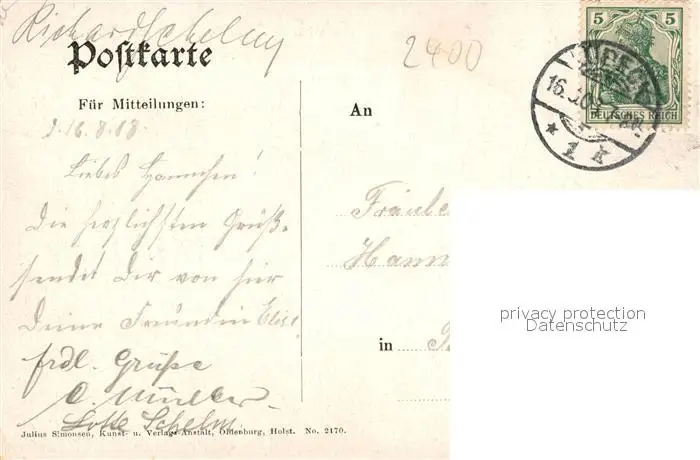 Richard Schelm
Postkarte
2400
Für Mitteilungen:
An
5 5
DEUTSCHES REICH
LÜBECK
16.
* 1 k
16.8.08.
Liebes Hannchen!
Die herzlichsten Grüße
sendet Dir von hier
Deine Freundin
frdl. Grüße
C. Müller.
Lotte Schelm.
Fräule
Hann
in
Julius Simonsen, Kunst- u. Verlags-Anstalt, Oldenburg, Holst. No. 2170.
privacy protection
Datenschutz